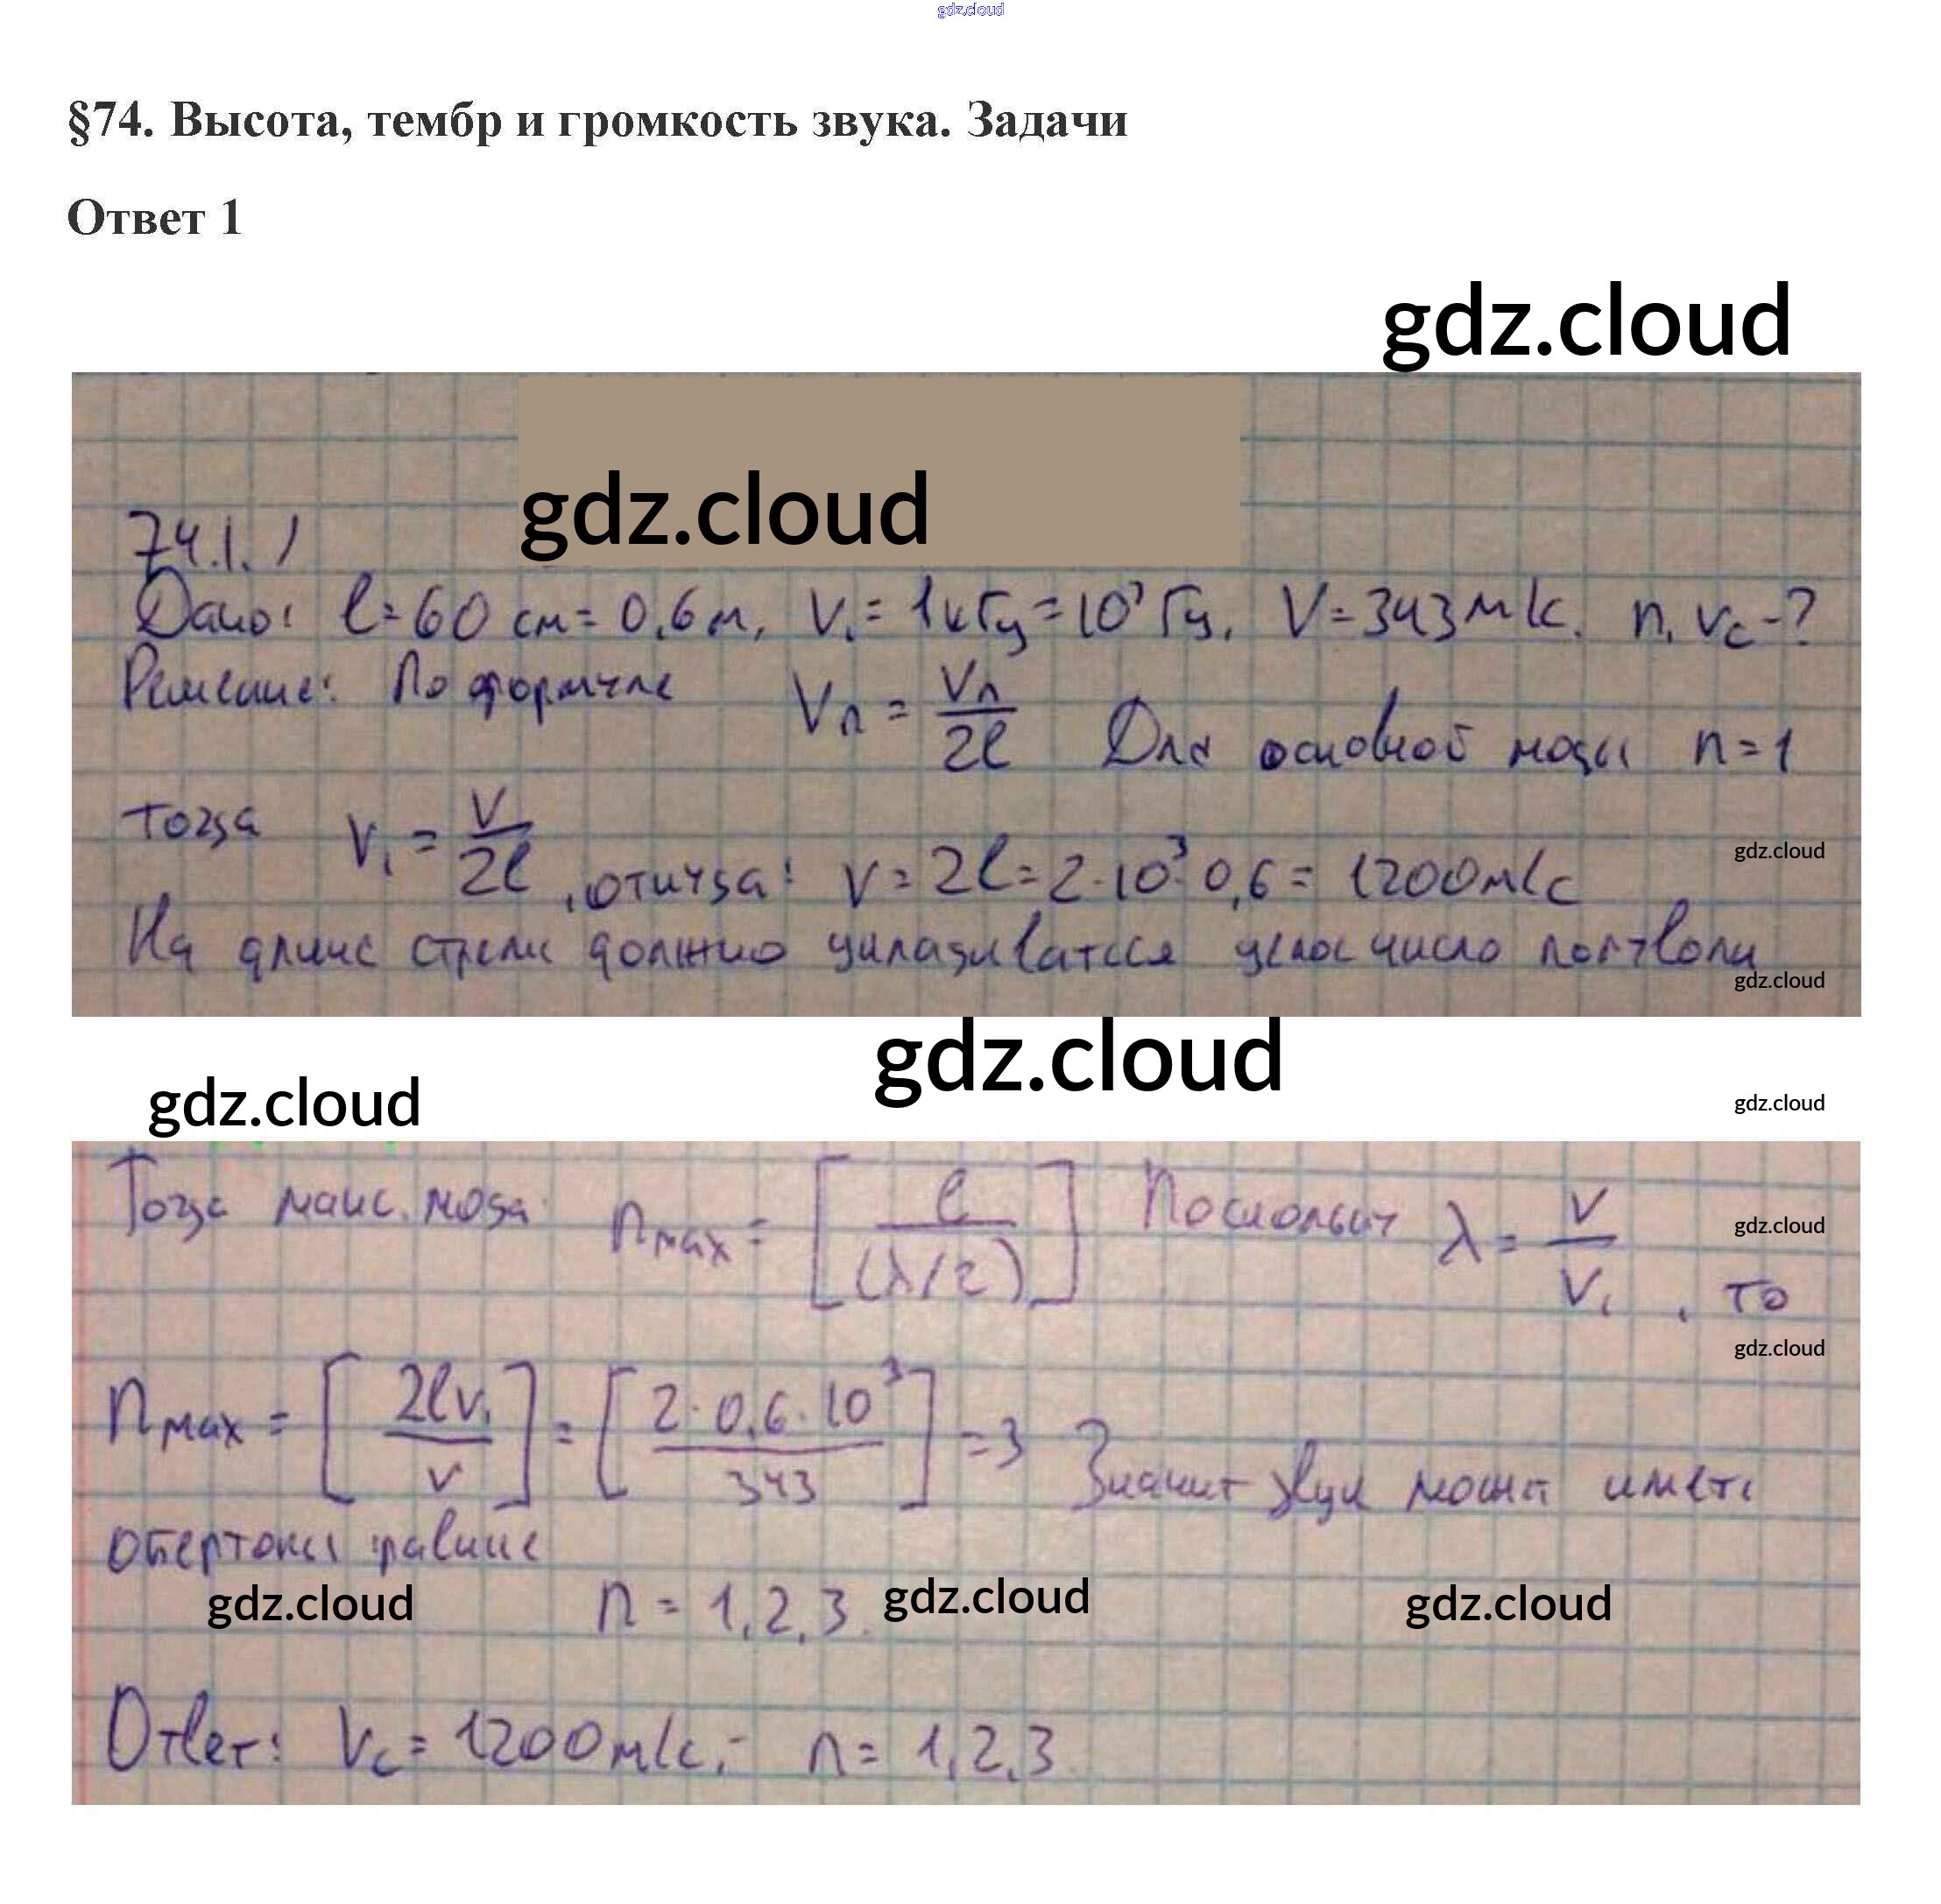 gdz.cloud
§74. Высота, тембр и громкость звука. Задачи
Ответ 1
gdz.cloud
gdz.cloud
74.1. 1
Дано: l = 60 см = 0,6 м, ν₁ = 1 кГц = 10³ Гц, V = 343 м/с. n, vc - ?
Решение: По формуле νn = vn/2l Для основной моды n = 1
тогда ν₁ = v/2l, откуда: v = 2l = 2·10³·0,6 = 1200 м/с
gdz.cloud
На длине должно укладываться целое число полуволн
gdz.cloud
gdz.cloud
gdz.cloud
gdz.cloud
Тогда макс. мода n max = [l/(λ/2)] Поскольку λ = v/ν₁, то
gdz.cloud
gdz.cloud
n max = [2lν₁/v] = [2·0,6·10³/343] = 3 Значит звук может иметь
обертоны равные
gdz.cloud
n = 1,2,3.
gdz.cloud
gdz.cloud
Ответ: Vc = 1200 м/с; n = 1,2,3.